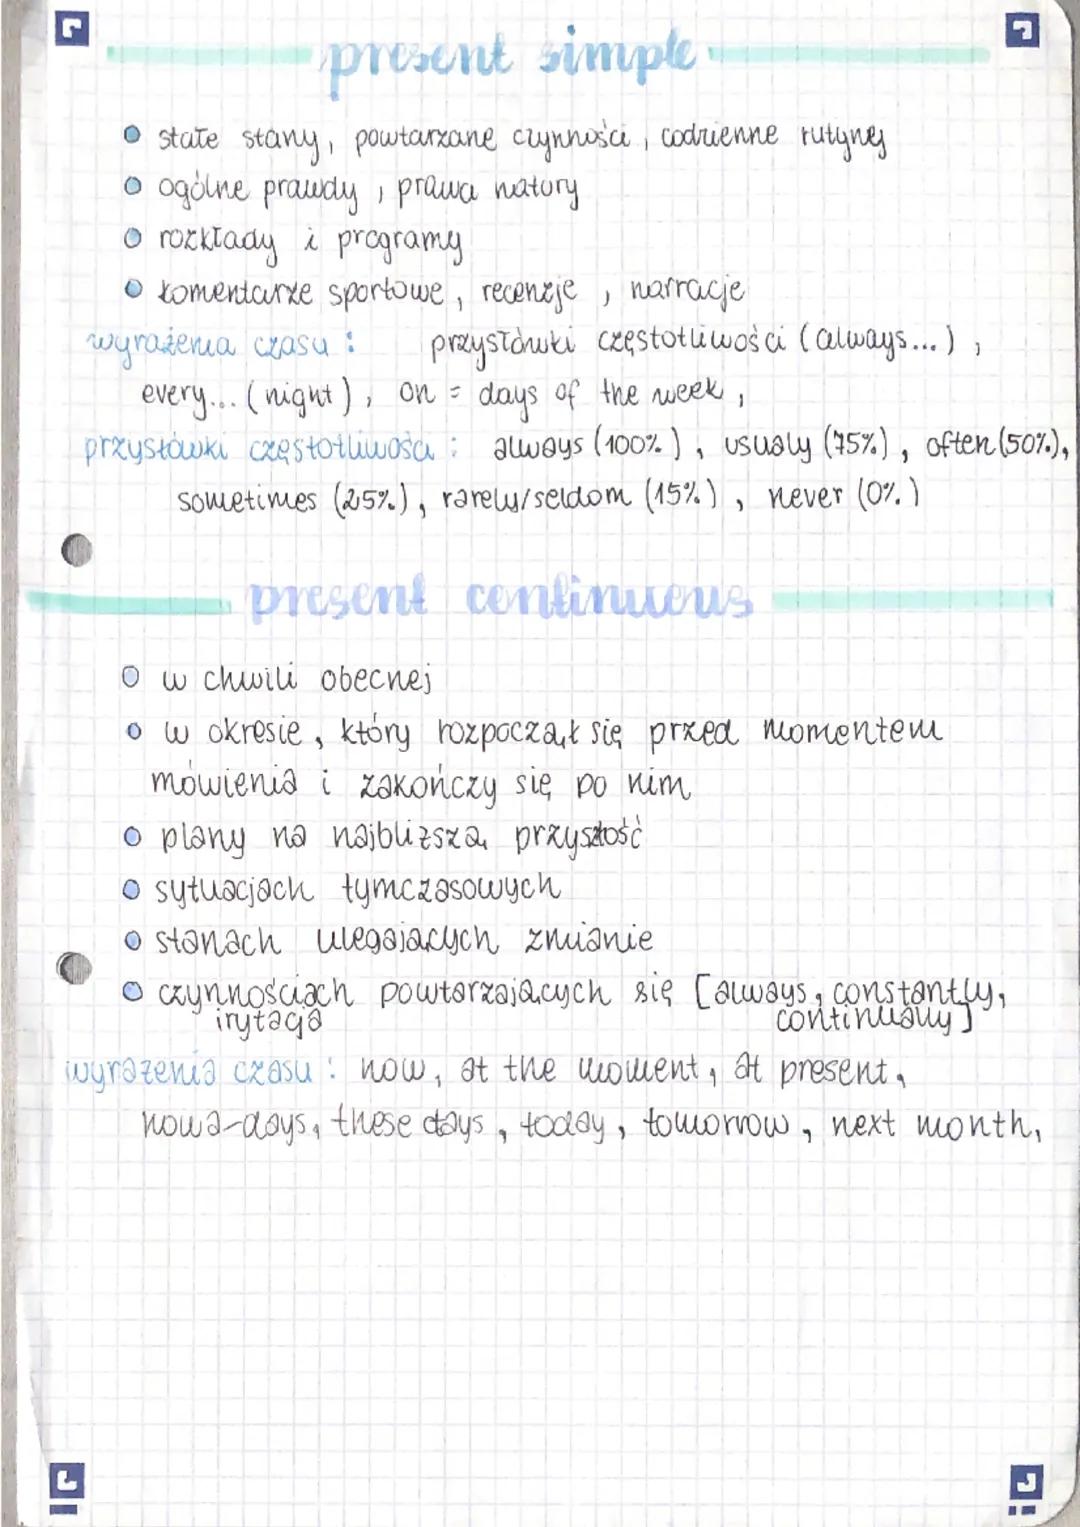 present simple
stałe stany, powtarzane czynności, codzienne rutyny
ogólne prawdy, prawa natury
rozkłady i programy
komentarze sportowe, recenzje, narracje
wyrażenia czasu: przysłówki częstotliwości (always...),
every... (night), on = days of the week,
przysłówki częstotliwości: always (100%), usualy (75%), often (50%),
sometimes (25%), rarely/seldom (15%), never (0%)
present continuous
w chwili obecnej
w okresie, który rozpoczął się przed momentem
mówienia i zakończy się po nim
plany na najbliższą przyszłość
sytuacjach tymczasowych
stanach ulegających zmianie
czynnościach powtarzających się [always, constantly,
irytacja continually]
wyrażenia czasu: now, at the moment, at present,
nowa-days, these days, today, tomorrow, next month,